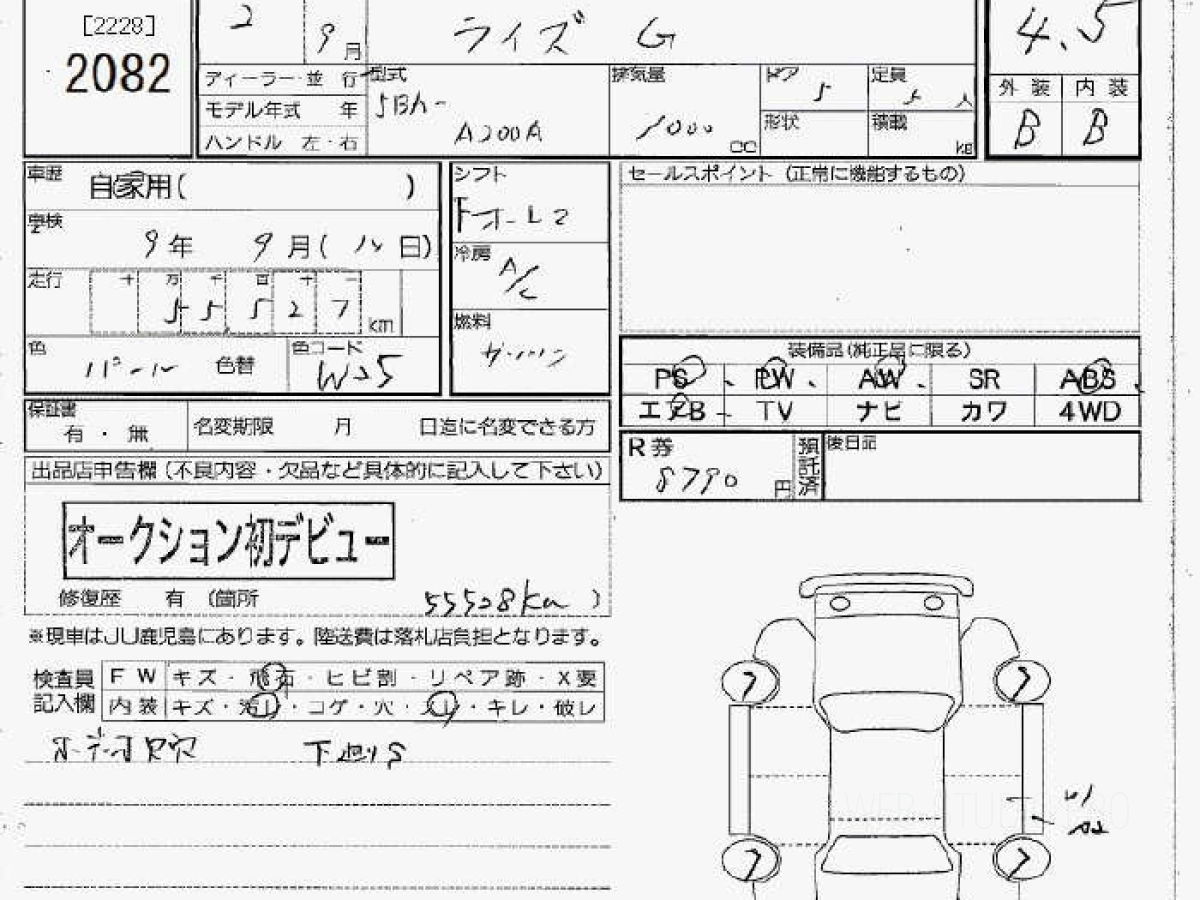 [2228]
2082
2 9月
ライズ G
4.5
ディーラー・並 行
モデル年式 年
ハンドル 左・右
型式
5BA-
A200A
排気量
1000 CC
ドア
5
定員
5 人
形状
積載
kg
外 装 内 装
B B
車歴
自家用( )
車検
9年 9月( 日)
走行
十 万 千 百 十 一
5 5 5 2 7 km
色
パール 色替
色コード
W25
シフト
Fオート
冷房
A/C
燃料
ガソリン
セールスポイント (正常に機能するもの)
装備品(純正品に限る)
PS PW AW SR ABS
エアB TV ナビ カワ 4WD
R券
8790 円
預託済
後日品
保証書
有 ・ 無
名変期限 月 日迄に名変できる方
出品店申告欄(不良内容・欠品など具体的に記入して下さい)
オークション初デビュー
修復歴 有 (箇所 55528km )
※現車はJU鹿児島にあります。陸送費は落札店負担となります。
検査員記入欄
FW キズ・飛石・ヒビ割・リペア跡・X要
内装 キズ・汚レ・コゲ・穴・スレ・キレ・破レ
オーデオ欠穴 下廻りS
7 7
U1
A2
7 7